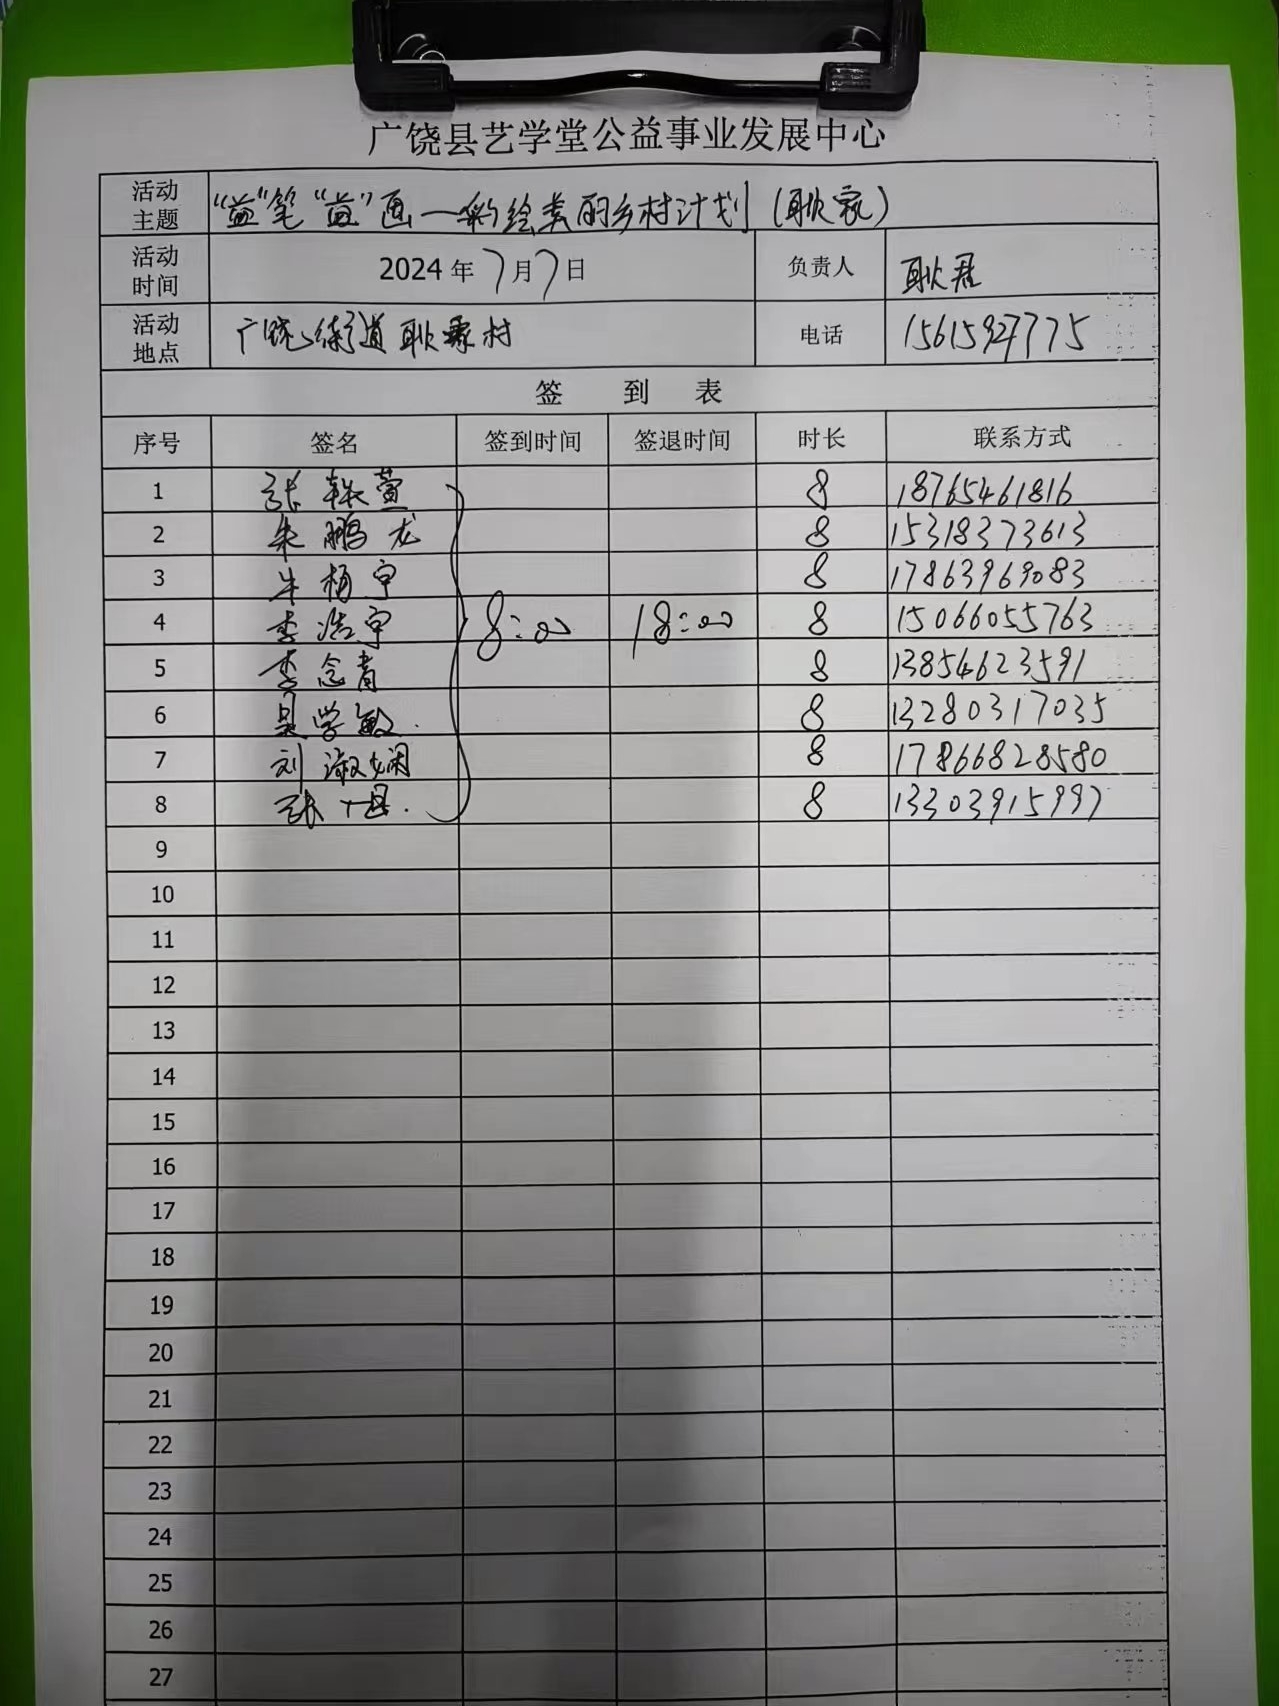 广饶县艺学堂公益事业发展中心
活动主题 “益”笔“益”画一彩绘美的乡村计划(耿家)
活动时间 2024年7月7日 负责人 耿君
活动地点 广饶街道耿家村 电话 15615927775
签 到 表
序号 签名 签到时间 签退时间 时长 联系方式
1 张轶萱 8 18765461816
2 朱鹏龙 8 15318373613
3 牛杨宇 8 17863969083
4 李浩宇 8:00 18:00 8 15066055763
5 李念青 8 13854623591
6 吴学敏. 8 13280317035
7 刘淑娴 8 17866828580
8 张 8 13303915997
9
10
11
12
13
14
15
16
17
18
19
20
21
22
23
24
25
26
27